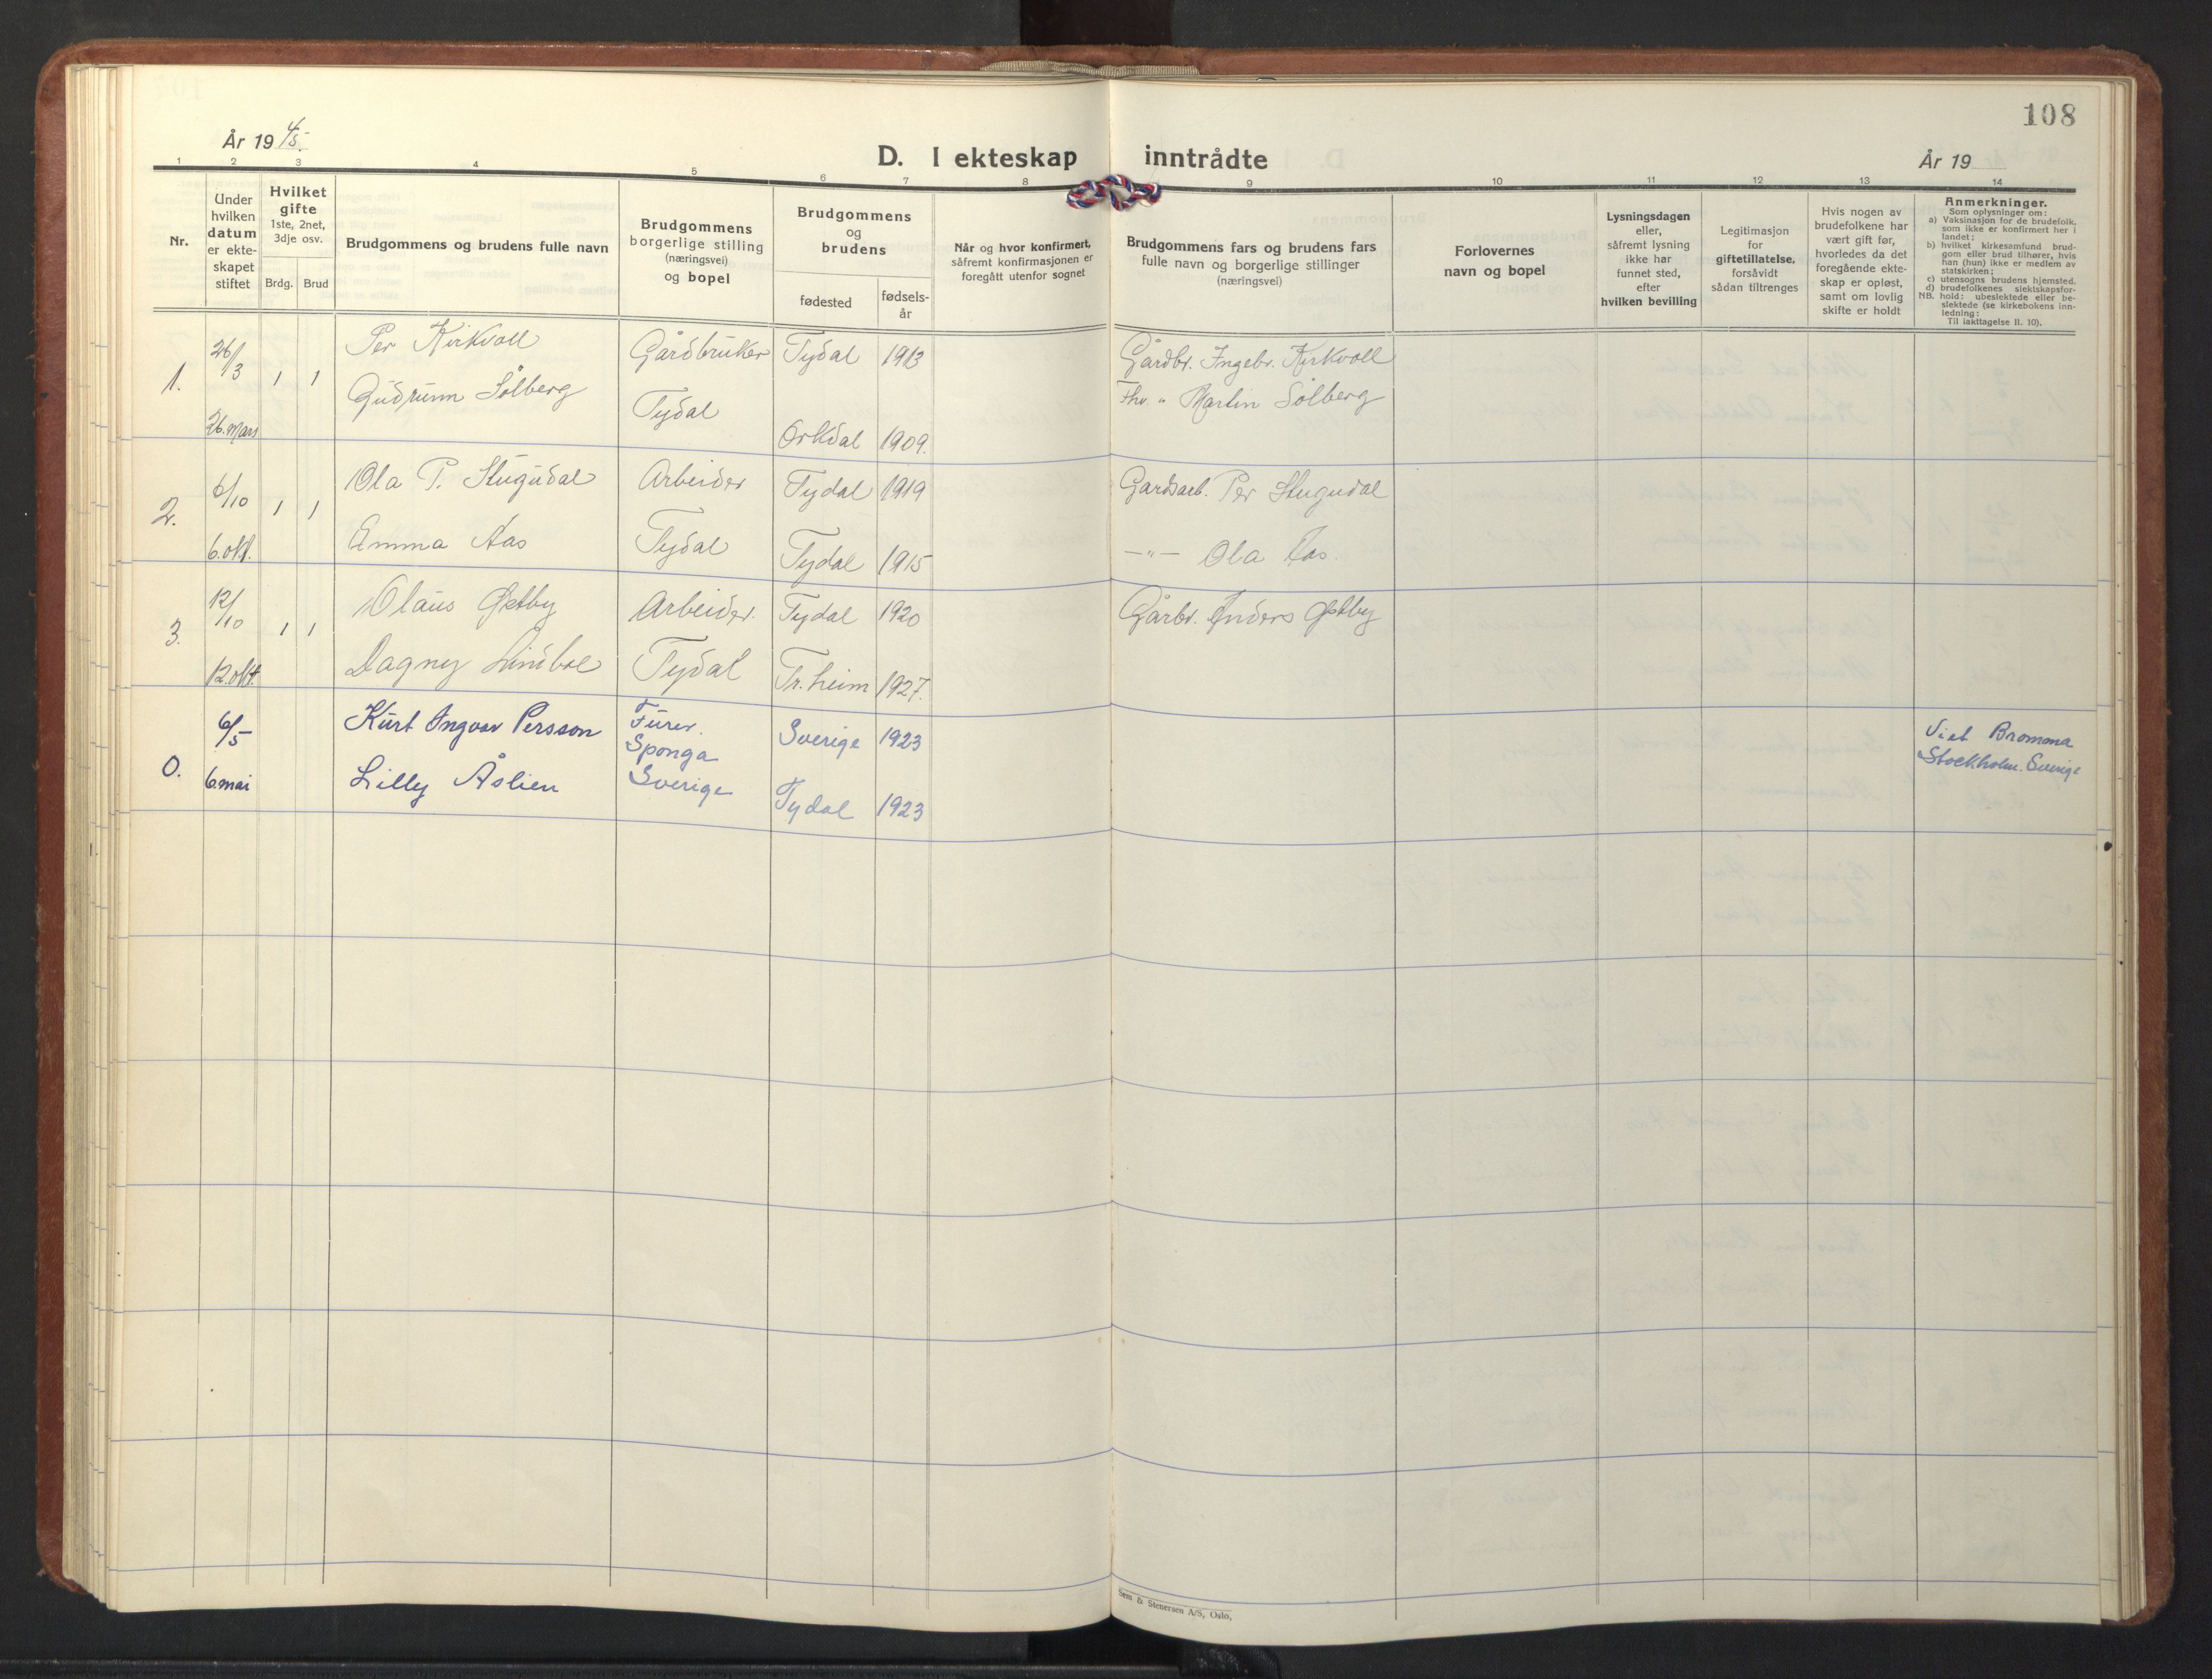 108
År 1945.
D. I ekteskap inntrådte
År 19
1 2 3 4 5 6 7 8 9 10 11 12 13 14
Nr.
Under
hvilken
datum
er ekte-
skapet
stiftet
Hvilket
gifte
1ste, 2net,
3dje osv.
Brdg. Brud
Brudgommens og brudens fulle navn
Brudgommens
borgerlige stilling
(næringsvei)
og bopel
Brudgommens
og
brudens
fødested
fødsels-
år
Når og hvor konfirmert,
såfremt konfirmasjonen er
foregått utenfor sognet
Brudgommens fars og brudens fars
fulle navn og borgerlige stillinger
(næringsvei)
Forlovernes
navn og bopel
Lysningsdagen
eller,
såfremt lysning
ikke har
funnet sted,
efter
hvilken bevilling
Legitimasjon
for
giftetillatelse,
forsåvidt
sådan tiltrenges
Hvis nogen av
brudefolkene har
vært gift før,
hvorledes da det
foregående ekte-
skap er opløst,
samt om lovlig
skifte er holdt
Anmerkninger.
Som oplysninger om:
a) Vaksinasjon for de brudefolk,
som ikke er konfirmert her i
landet;
b) hvilket kirkesamfund brud-
gom eller brud tilhører, hvis
han (hun) ikke er medlem av
statskirken;
c) utensogns brudens hjemsted.
d) brudefolkenes slektskapsfor-
NB. hold: ubeslektede eller be-
slektede (se kirkebokens inn-
ledning:
Til iakttagelse II. 10).
1. 26/3 1 1 Per Kirkvoll Gårdbruker Tydal 1913 Gårdbr. Ingebr. Kirkvoll
26. mars Gudrunn Solberg Tydal Orkdal 1909. Fhv. " Martin Solberg
2. 6/10 1 1 Ola P. Stugudal Arbeider Tydal 1919 Gardsarb. Per Stugudal
6. okt. Emma Aas Tydal Tydal 1915 —"— Ola Aas.
3. 12/10 1 1 Olaus Østby Arbeider. Tydal 1920 Gårbr. Anders Østby
12. okt. Dagny Lindboe Tydal Tr.heim 1927.
0. 6/5 Kurt Ingvar Persson Furer. Sverige 1923 Viet Bromma
Sponga Stockholm. Sverige
6. mai Lilly Åslien Sverige Tydal 1923
Sem & Stenersen A/S, Oslo.